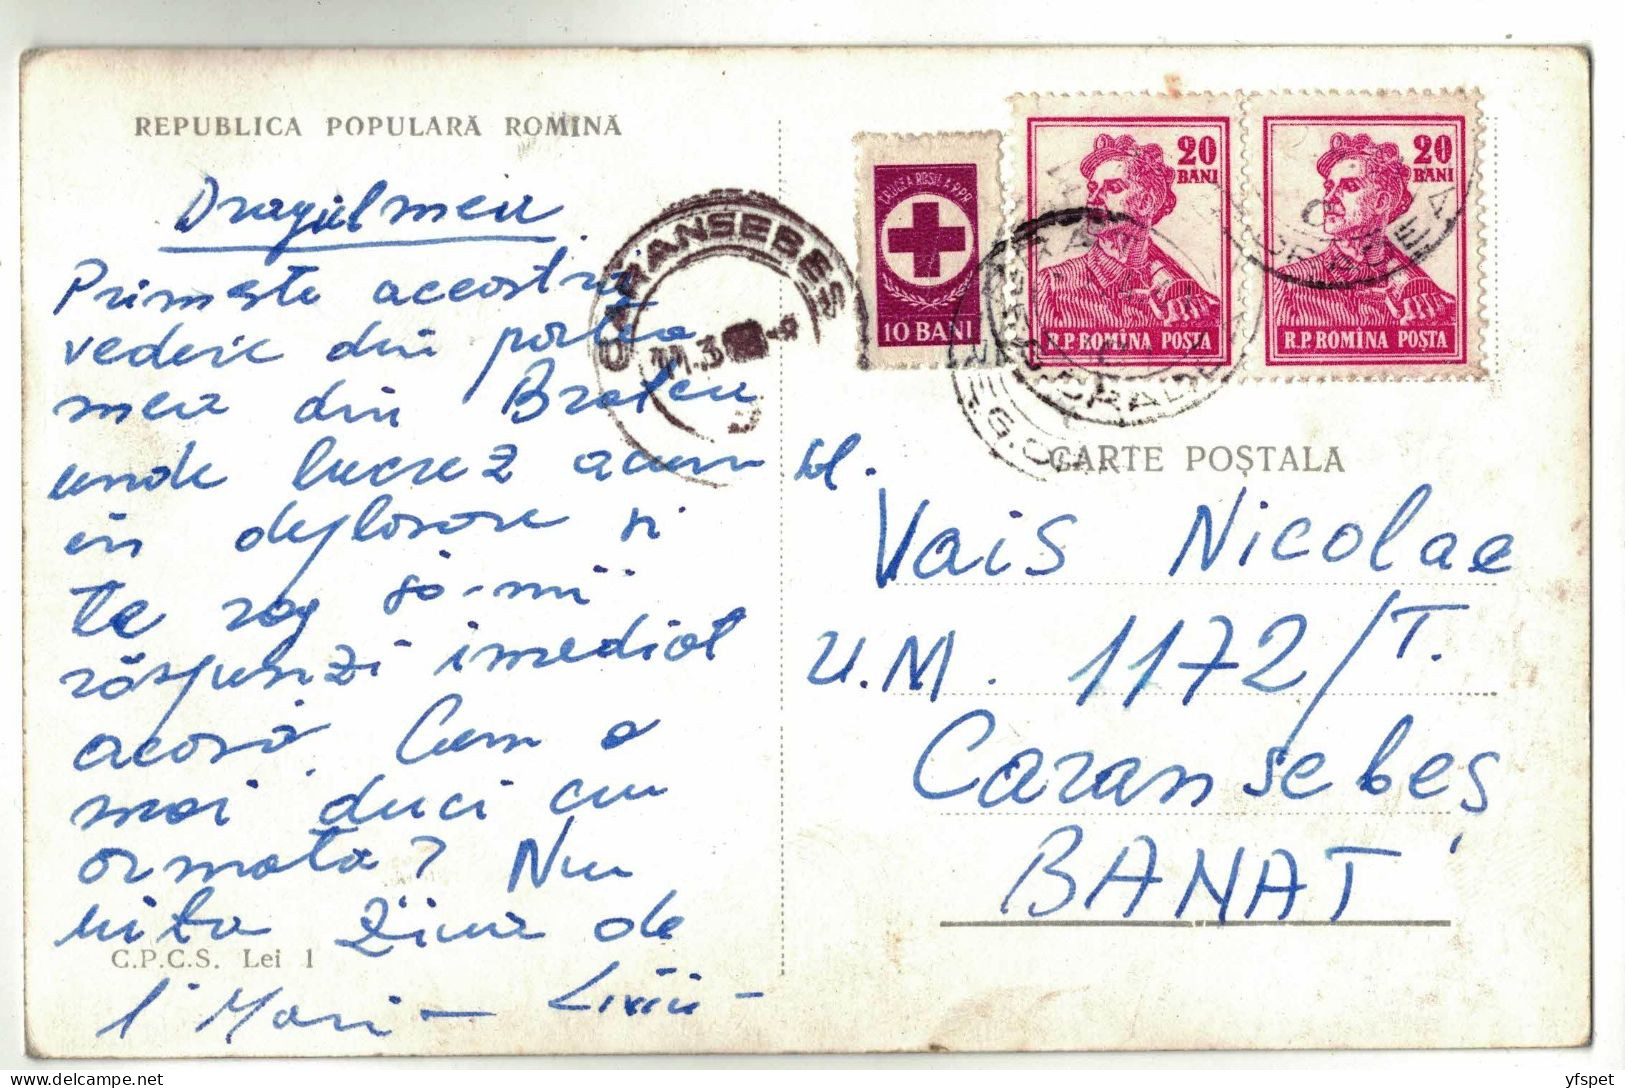 REPUBLICA POPULARĂ ROMÎNĂ
Dragul meu
Primește aceostră
vedere din portea
mea din Brateiu
unde lucrez acum
în deplosore și
te rog să-mi
răspunzi imediot
acosă. Cum o
mai duci cu
ormata? Nu
uita Ziua de
1 Mari – Liviu –
C.P.C.S. Lei 1
CARANSEBEȘ
CRUCEA ROȘIE A R.P.R.
10 BANI
20 BANI
R.P. ROMÎNA POȘTA
20 BANI
R.P. ROMÎNA POȘTA
CARTE POȘTALA
Vais Nicolae
U.M. 1172/T.
Caransebeș
BANAT
delcampe.net
yfspet